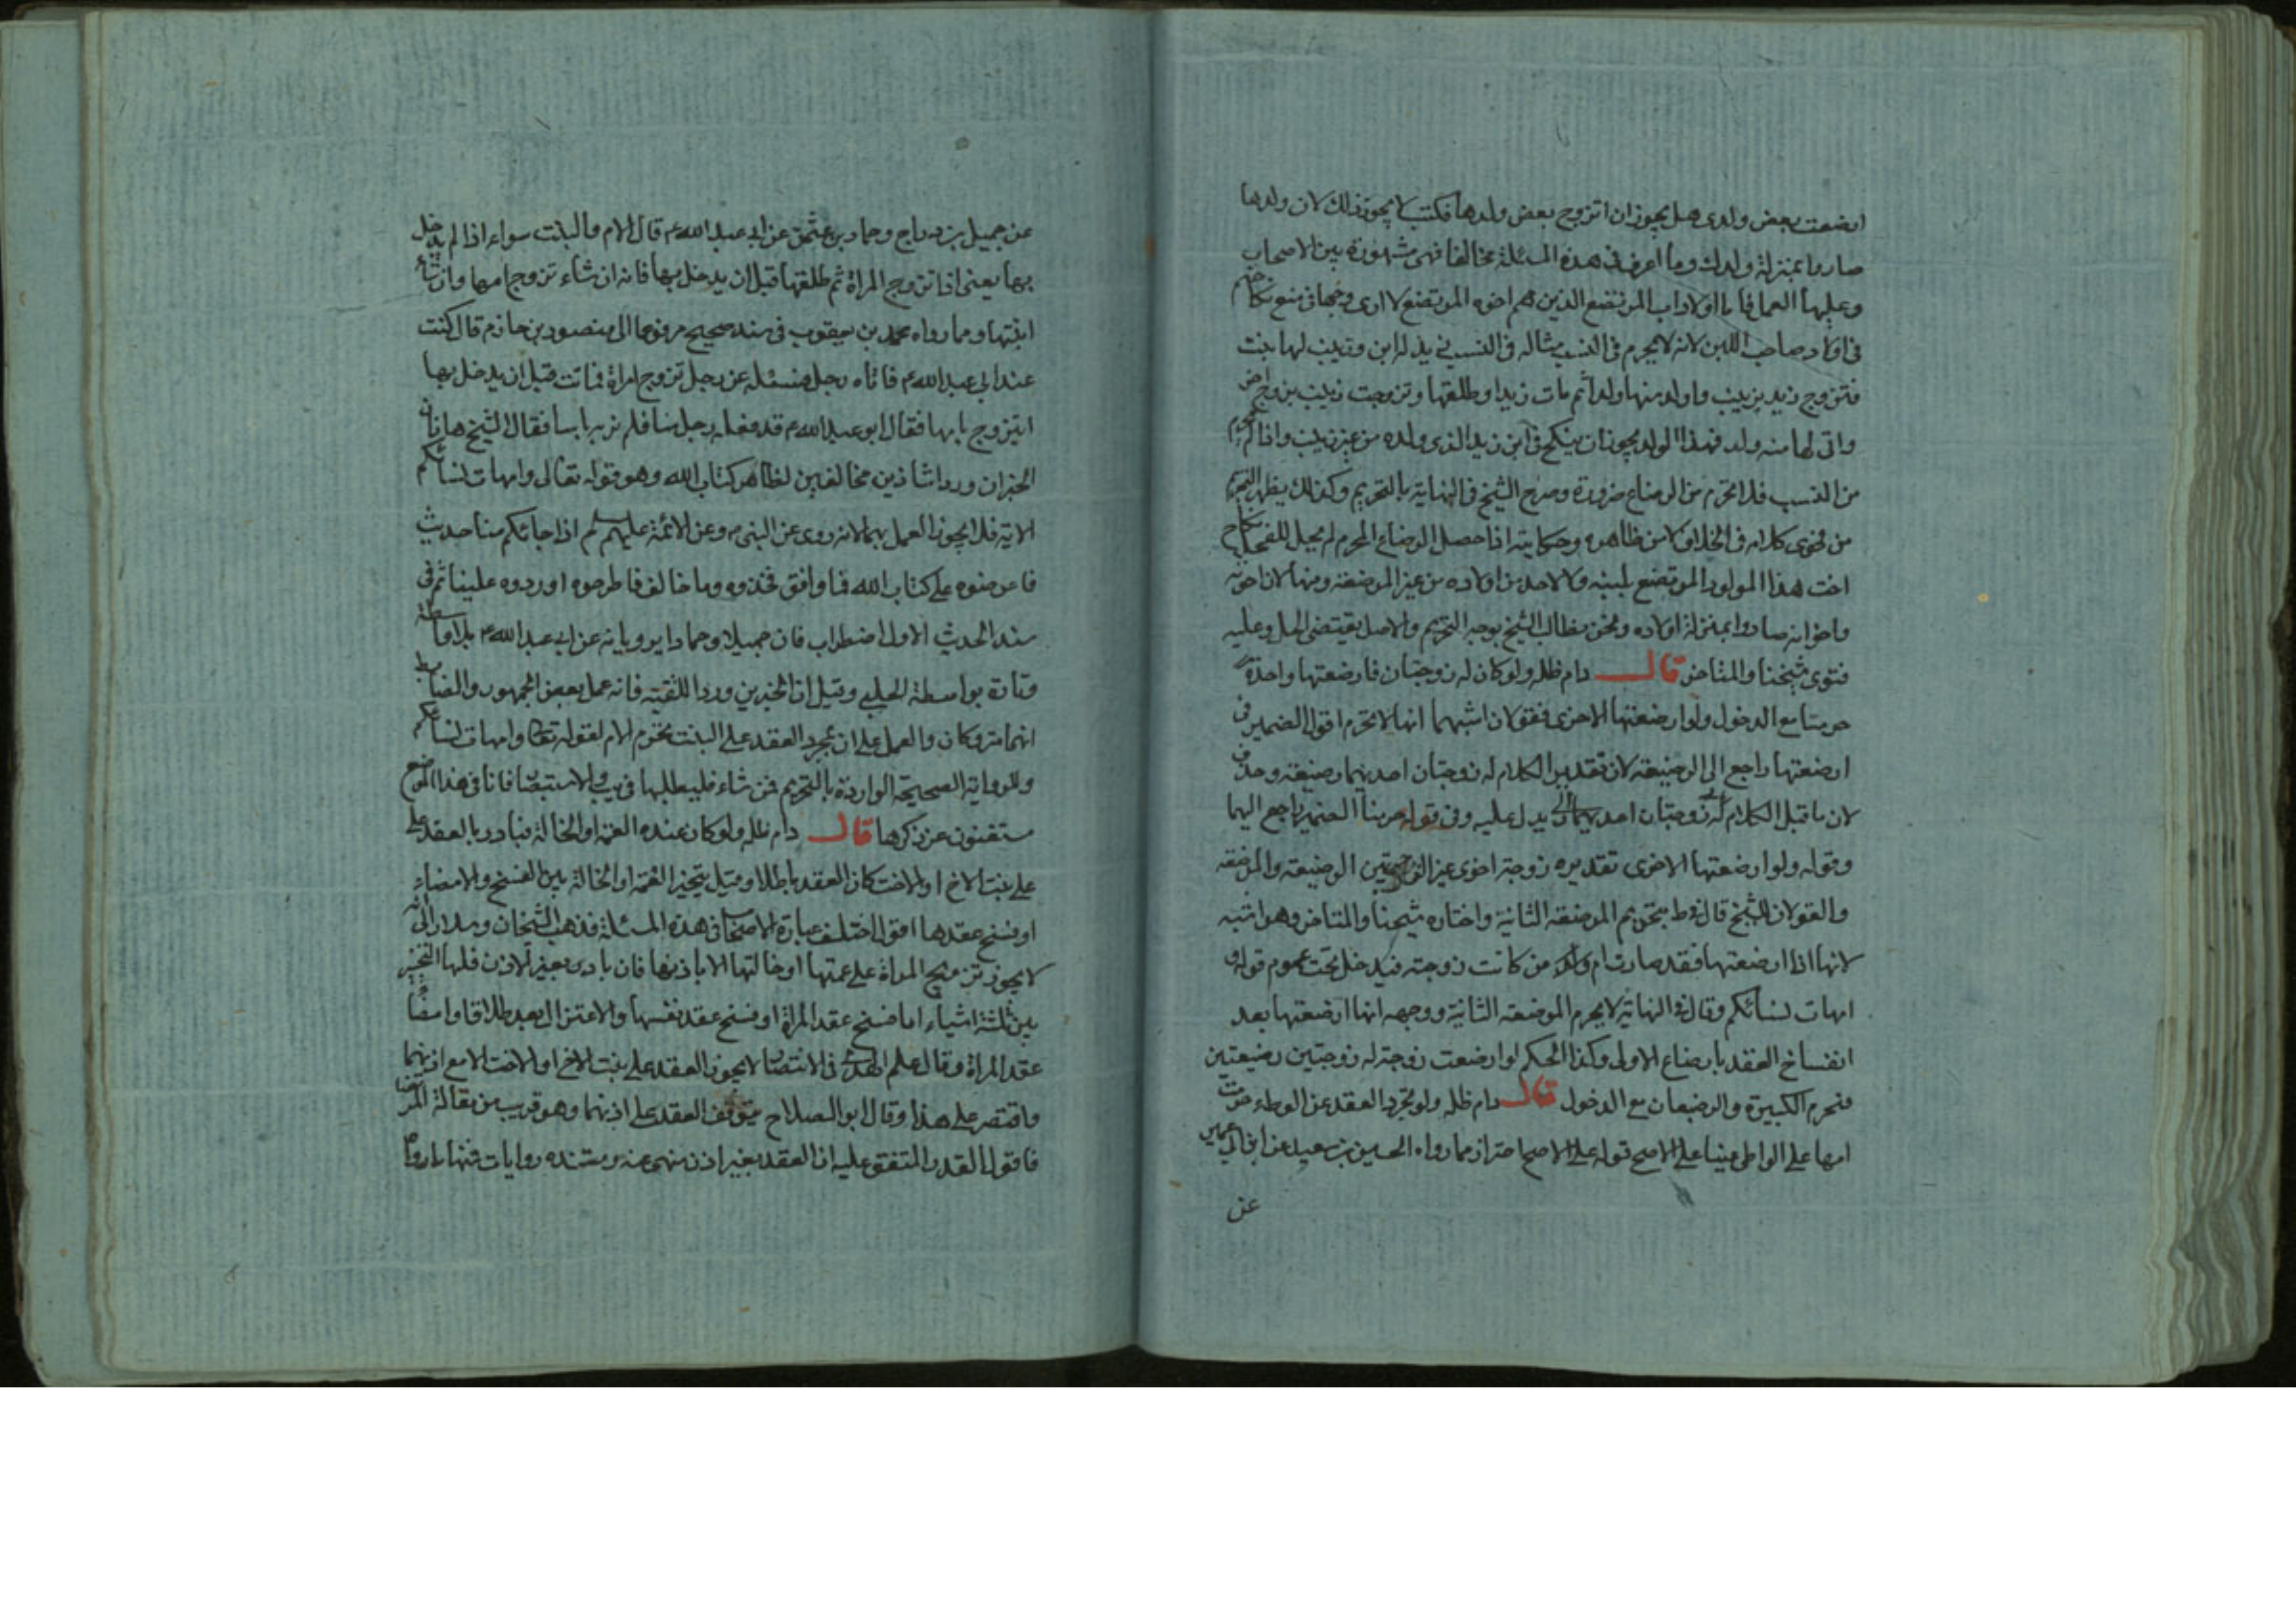 ارضعت بعض ولدى هل يجوز ان اتزوج بعض ولدها فكتب لا يجوز ذلك لان ولدها
صاروا بمنزلة ولدك وما اعرف فى هذه المسئلة مخالفا فهى مشهورة بين الاصحاب
وعليها العمل فاما اولاد اب المرتضع الذين هم اخوه المرتضع لا ارى وجها فى منع نكاحهم
فى اولاد صاحب اللبن لانه لا يحرم فى النسب مثاله فى النسب زيد له ابن وزينب لها بنت
فتزوج زيد بزينب واولد منها ولدا ثم مات زيد او طلقها وتزوجت زينب بزوج اخر
واتى لها منه ولد فهذا الولد يجوز ان ينكح فى ابن زيد الذى ولده من غير زينب واذا لم يحرم
من النسب فلا تحرم من الرضاع ضرورة وصرح الشيخ فى النهاية بالتحريم وكذلك يظهر التحريم
من فحوى كلامه فى الخلاف لا من ظاهره وحكايته اذا حصل الرضاع المحرم لم يحل للفحل نكاح
اخت هذا المولود المرتضع بلبنه ولا لاحد من اولاده من غير المرضعة ومنها لان اخوته
واخواته صاروا بمنزلة اولاده ونحن نطالب الشيخ بوجه التحريم والاصل يقتضى الحل وعليه
فتوى شيخنا والمتاخر قال دام ظله ولو كان له زوجتان فارضعتها واحدة
حرمتا مع الدخول ولو ارضعتها الاخرى فقولان اشبههما انها لا تحرم اقول الضمير فى
ارضعتها راجع الى الرضيعة لان تقدير الكلام له زوجتان احديهما رضيعة وحذف
لان ما قبل الكلام له زوجتان احديهما يدل عليه وفى قوله حرمتا الضمير راجع اليهما
وقوله ولو ارضعتها الاخرى تقديره زوجة اخرى غير الزوجتين الرضيعة والمرضعة
والقولان للشيخ قال فى ط بتحريم المرضعة الثانية واختاره شيخنا والمتاخر وهو اشبه
لانها اذا ارضعتها فقد صارت ام من كانت زوجته فيدخل تحت عموم قوله
امهات نسائكم وقال فى النهاية لا يحرم المرضعة الثانية ووجهه انها ارضعتها بعد
انفساخ العقد بارضاع الاولى وكذا الحكم لو ارضعت زوجته له زوجتين رضيعتين
فتحرم الكبيرة والرضيعان مع الدخول قال دام ظله ولو تجرد العقد عن الوطء حرمت
امها على الواطى عينا على الاصح قوله على الاصح احتراز مما رواه الحسين بن سعيد عن ابن ابى عمير
عن
عن جميل بن دراج وحماد بن عثمن عن ابى عبد الله ع قال الام والبنت سواء اذا لم يدخل
بها يعنى اذا تزوج المراة ثم طلقها قبل ان يدخل بها فانه ان شاء تزوج امها وان شاء
ابنتها ومما رواه محمد بن يعقوب فى سند صحيح مرفوعا الى منصور بن حازم قال كنت
عند ابى عبد الله ع فاتاه رجل فسئله عن رجل تزوج امراة فماتت قبل ان يدخل بها
ايتزوج بامها فقال ابو عبد الله ع قد فعله رجل منا فلم نر به باسا فقال الشيخ هاذان
الخبران وردا شاذين مخالفين لظاهر كتاب الله وهو قوله تعالى وامهات نسائكم
الاية فلا يجوز العمل بهما لانه روى عن النبى ص وعن الائمة عليهم السلام اذا جائكم منا حديث
فاعرضوه على كتاب الله فما وافق فخذوه وما خالف فاطرحوه او ردوه علينا ثم فى
سند الحديث الاول اضطراب فان جميلا وحمادا يرويانه عن ابى عبد الله ع بلا واسطة
وتارة بواسطة الحلبى وقيل ان الخبرين وردا للتقية فانه عمل بعض الجمهور والضابط
انهما متروكان والعمل على ان بمجرد العقد على البنت تحرم الام لقوله تعالى وامهات نسائكم
وللرواية الصحيحة الواردة بالتحريم فمن شاء فليطلبها فى يب والاستبصار فانا فى هذا الموضع
مستغنون عن ذكرها قال دام ظله ولو كان عنده العمة او الخالة فبادر بالعقد على
على بنت الاخ او الاخت كان العقد باطلا وقيل يتخير العمة او الخالة بين الفسخ والامضاء
او فسخ عقدها اقول اختلف عبارة الاصحاب فى هذه المسئلة فذهب الشيخان وسلار الى انه
لا يجوز تزويج المراة على عمتها او خالتها الا باذنها فان بادر بغير الاذن فلها التخيير
بين ثلثة اشياء اما فسخ عقد المراة او فسخ عقد نفسها والاعتزال بعد طلاق او امضاء
عقد المراة وقال علم الهدى فى الانتصار لا يجوز العقد على بنت الاخ او الاخت الا مع اذنهما
واقتصر على هذا وقال ابو الصلاح يتوقف العقد على اذنهما وهو قريب من مقالة المرتضى
فاقول القدر المتفق عليه ان العقد بغير اذن منهى عنه ومستنده روايات فمنها ما رواه